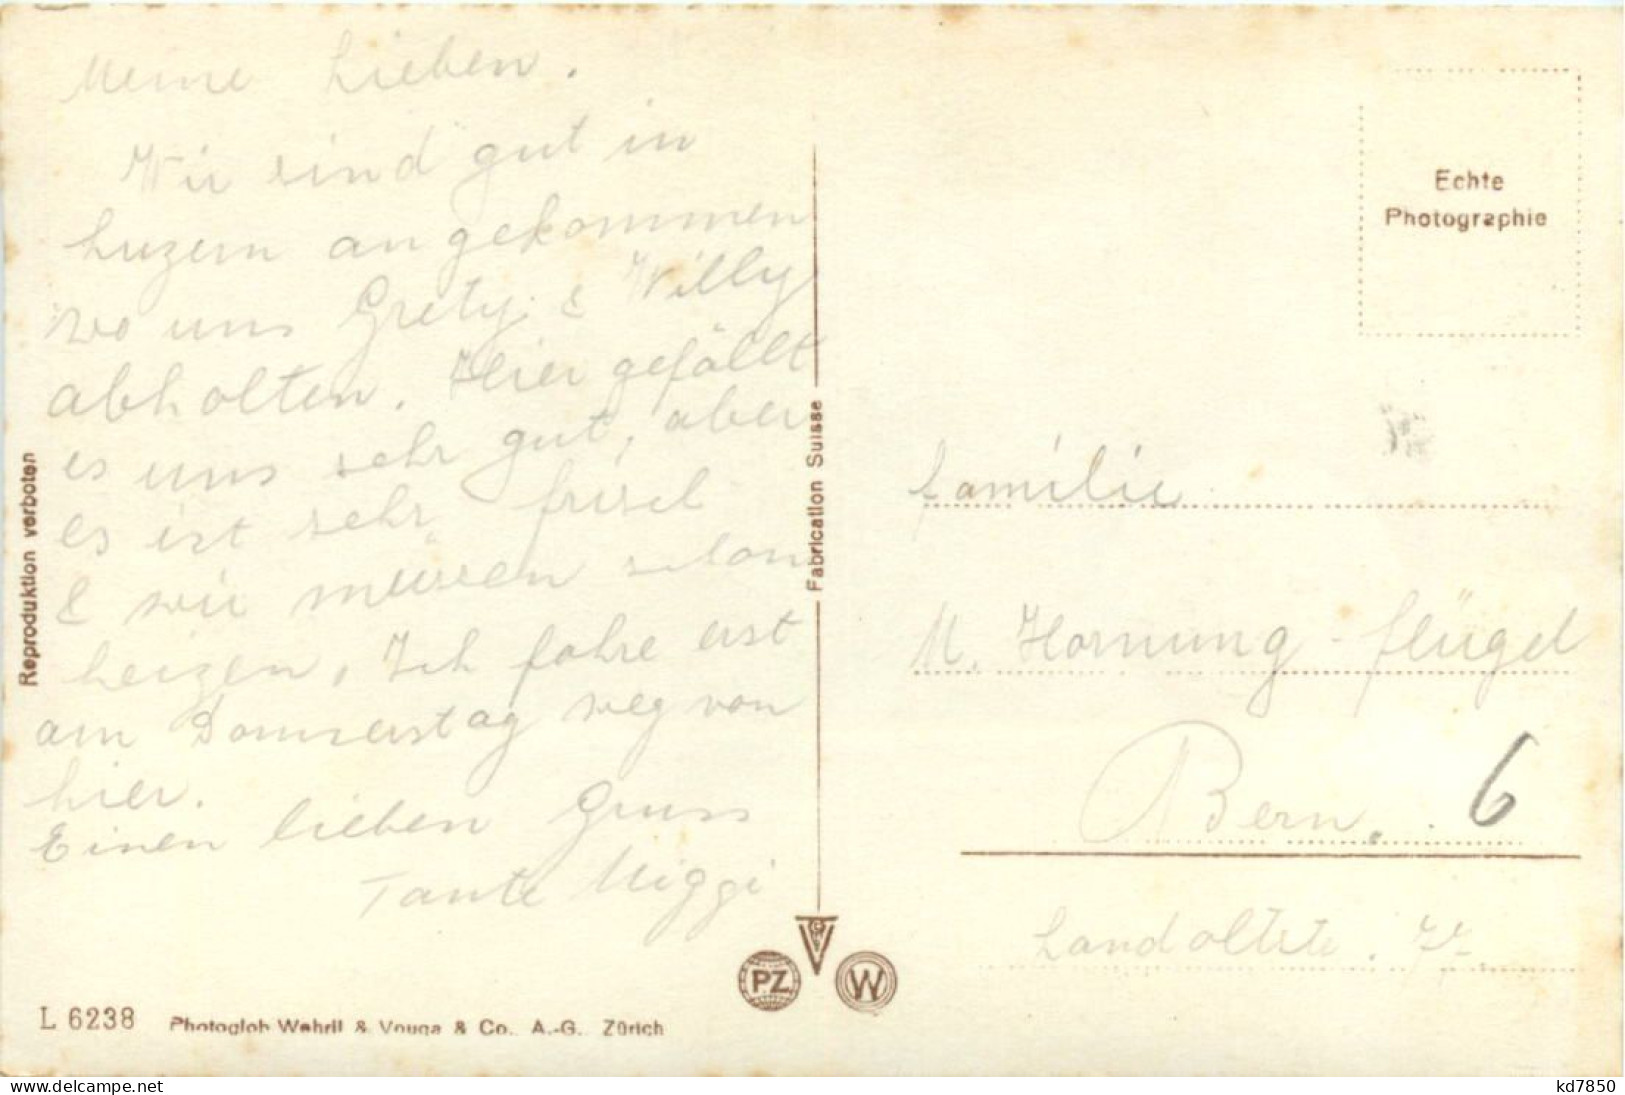 Meine Lieben.
Wir sind gut in
Luzern angekommen
wo uns Grety & Willy
abholten. Hier gefällt
es uns sehr gut, aber
es ist sehr frisch
& wir müssen schon
heizen. Ich fahre erst
am Donnerstag weg von
hier.
Einen lieben Gruss
Tante Miggi
Reproduktion verboten
L 6238 Photoglob Wehrli & Vouga & Co. A.-G. Zürich
Fabrication Suisse
PZ
W
Echte
Photographie
Familie
M. Hornung-Flügel
Bern. 6
Landoltstr.
www.delcampe.net
kd7850